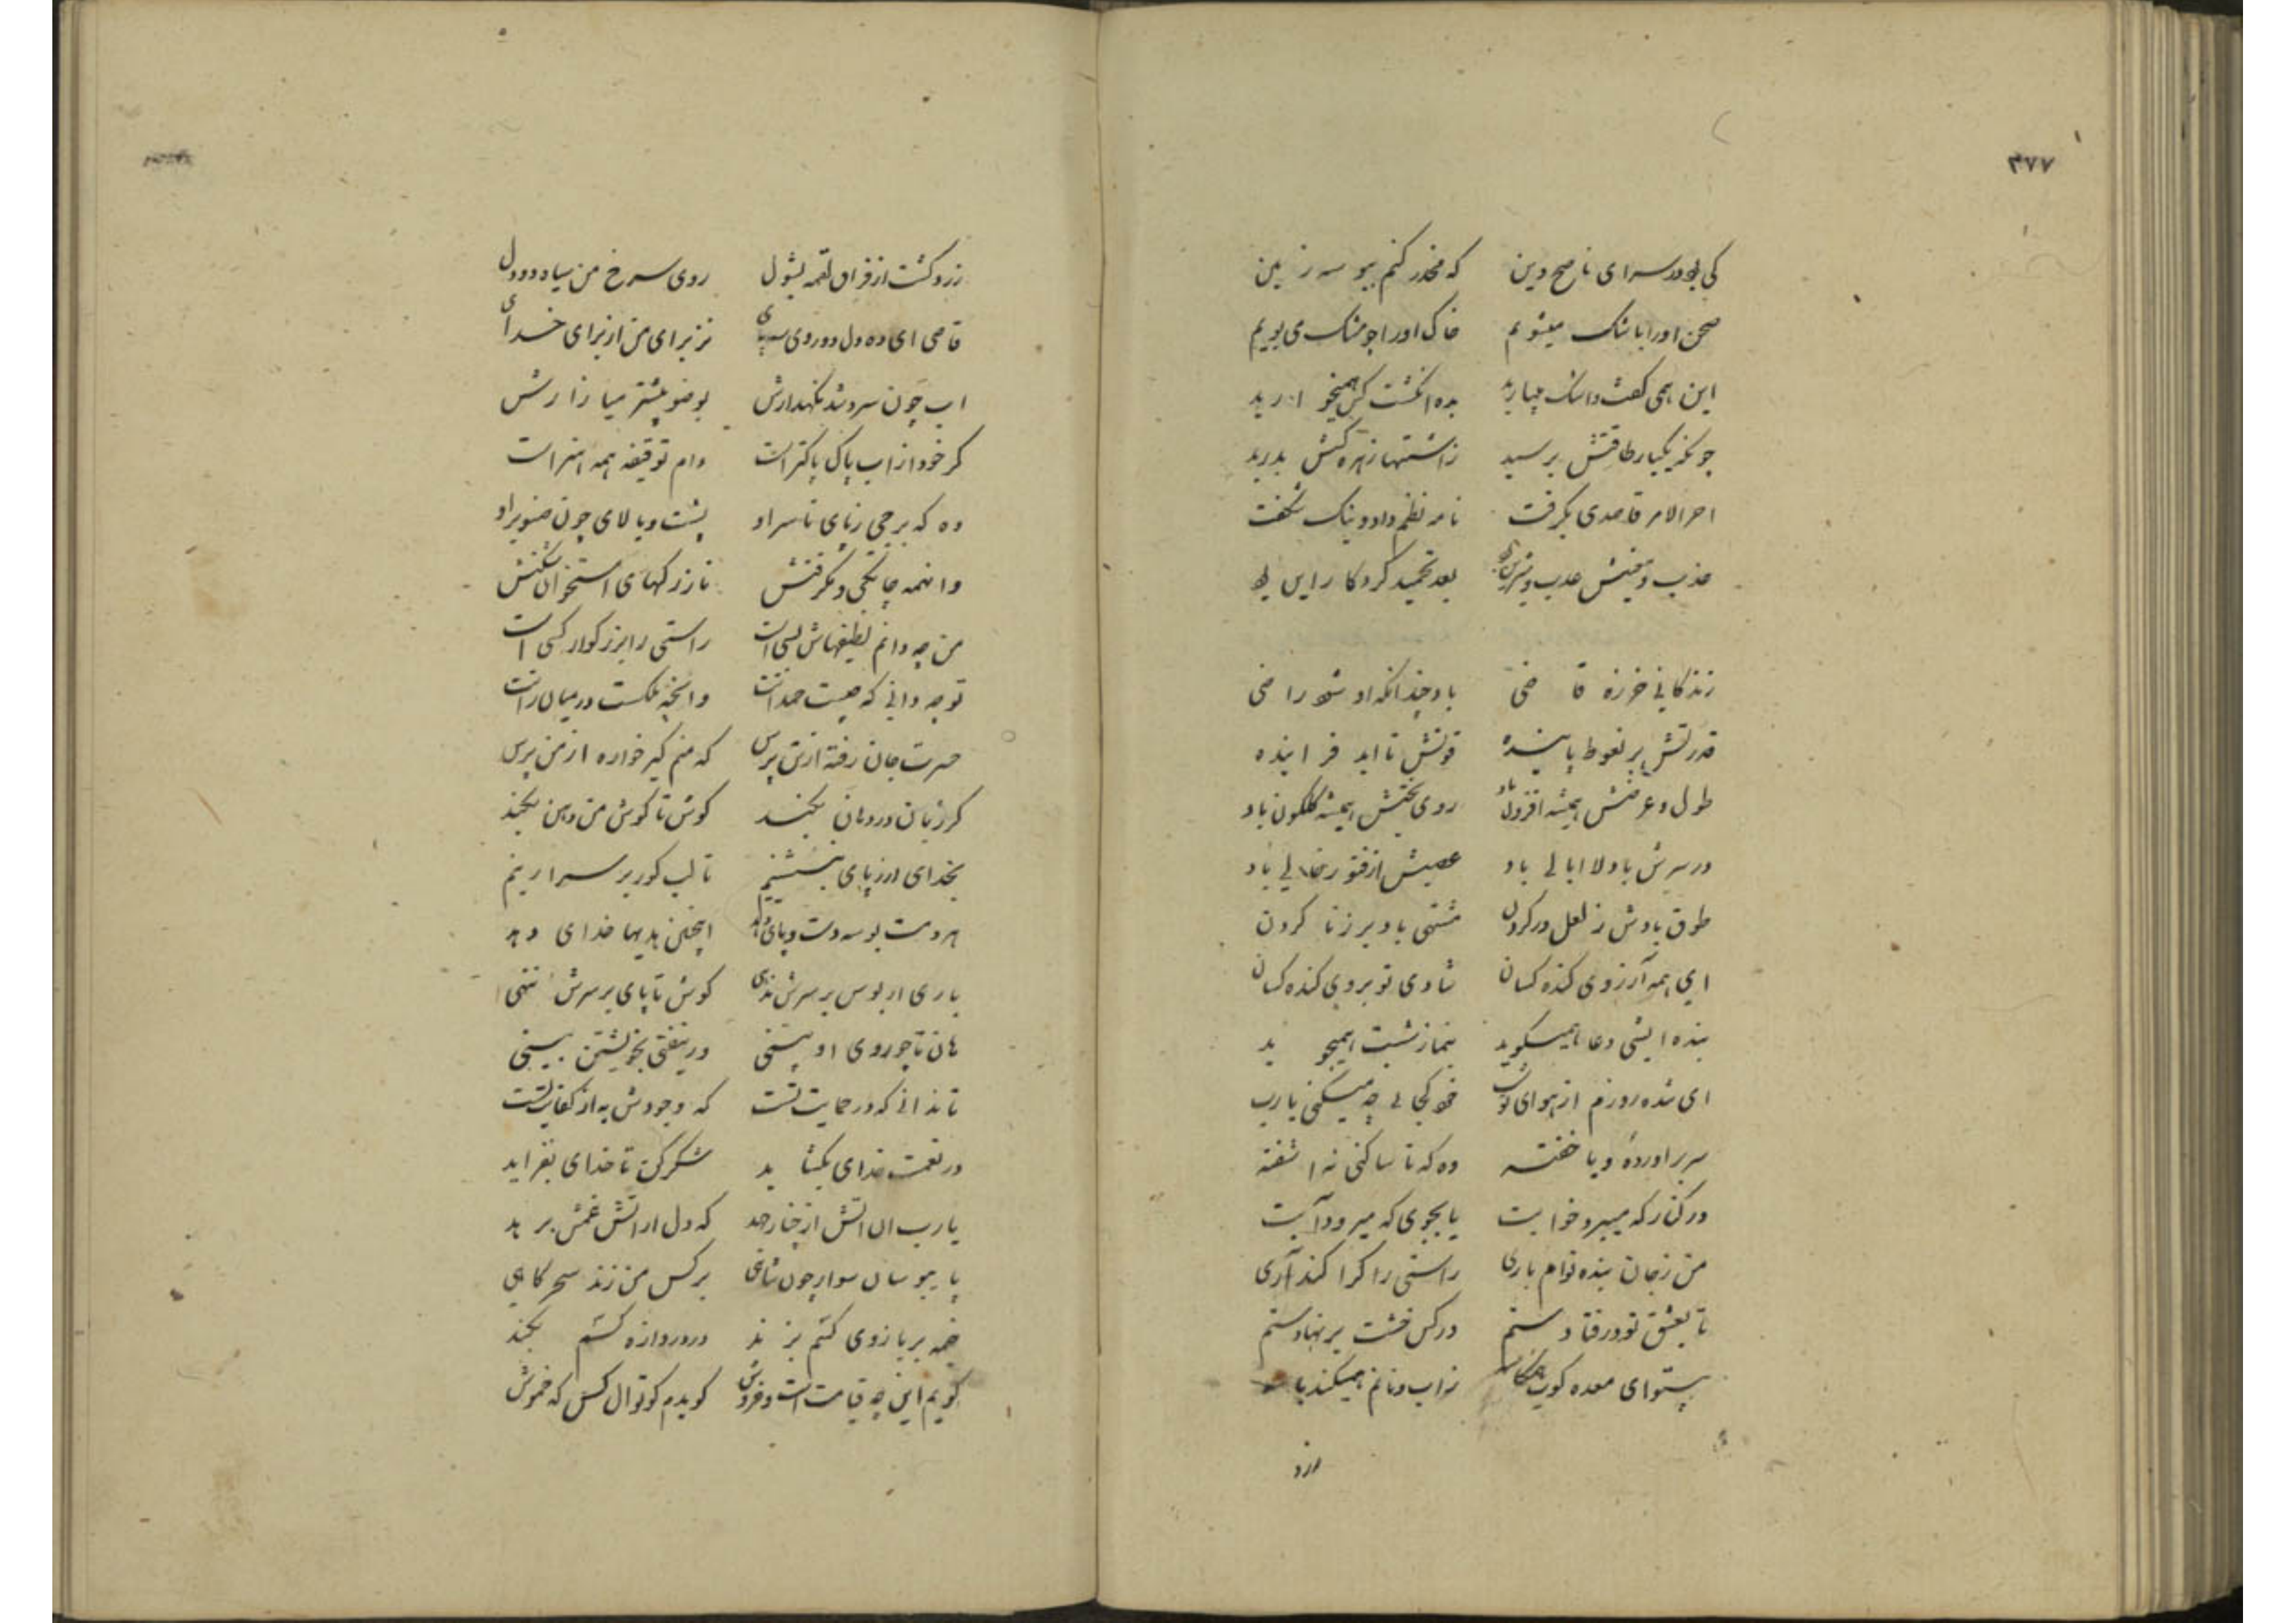 ۳۷۷
کی بود در سرای ناصح دین که مخدر کنم ببوسه زمین
صحن اورا باشک میشویم خاک اورا چو مشک می بویم
این همی گفت و اشک میبارید بده انگشت
چونکه یکبار طاقتش برسید ز اشتها زهره کسش بدرید
اخر الامر قاصدی بگرفت نامه نظم داد و نیک شگفت
بعد تحمید کردگار این
زندگانی خرزه قاضی باد چندانکه او شود راضی
قدرتش بر نعوظ پاینده قوتش تا ابد فزاینده
طول و عرضش همیشه افزون باد روی بختش همیشه گلگون باد
در سرش باد لا ابالی باد عصبش از فتور خالی باد
طوق بادش ز لعل در گردن مشتهی باد بر زنا کردن
ای همه آرزوی کنده کسان شادی تو بروی کنده کسان
بنده ایشی دعا همیگوید بنماز شبت همیجوید
ای شده روزم از هوای تو شب خود کجایی چه میکنی یارب
سر براوردهٔ و یا خفته وه که تا ساکنی نه اشفته
در کنار که میبرد خوابت یا بجوی که میرود آبت
من ز جان بنده توام باری راستی را کرا کند آری
تا بعشق تو در فتادستم در کس خشت بر نهادستم
بیتو ای معده کوب ز اب و نانم همیکند
ازد
زرد گشت از فراق لقمه بشول روی سرخ من سیاه دودول
قاضی ای ده دل دوروی بز برای من از برای خدای
اب چون سر و شد نگهدارش بوضو بیشتر میازارش
کر خود از اب پاک پاکتر است دام توقیفه همه هنر است
وه که برجی ز پای تا سر او پشت و بالای چون صنوبر او
وانهمه چابکی و نازرگهای استخوان شکنش
من چه دانم لطیفهاش بسی است راستی را بزرگوار کسی است
تو چه دانی که چیست حمدانت وانچه ملکست در میان رانت
حسرت جان رفته از تن پرس که منم کیر خواره از من پرس
کر زبان در دهان بگنجد گوش تا گوش من دهن بکند
بخدای ار ز پای بنشینم تا لب گور بر سر اریم
هر دمت بوسه دست و پای دهد اینچنین هدیها خدای دهد
باری ار بوس بر سرش ندهی گوش تا پای بر سرش ننهی
هان تا چو روی او بینی در بیفتی بخویشتن بینی
تا ندانی که در حمایت تست که وجودش به از کفایت تست
در نعمت خدای بگشاید شکر کن تا خدای بفزاید
یارب ان اتش از چنار جهد که دل از اتش غمش برهد
پا یبوسان سوار چون شاهی بر کس من زند سحرگاهی
خیمه بر بازوی کسم بزند در دروازه کسم بکند
گویم این چه قیامت است و خروش گویدم کوتوال کس که خموش